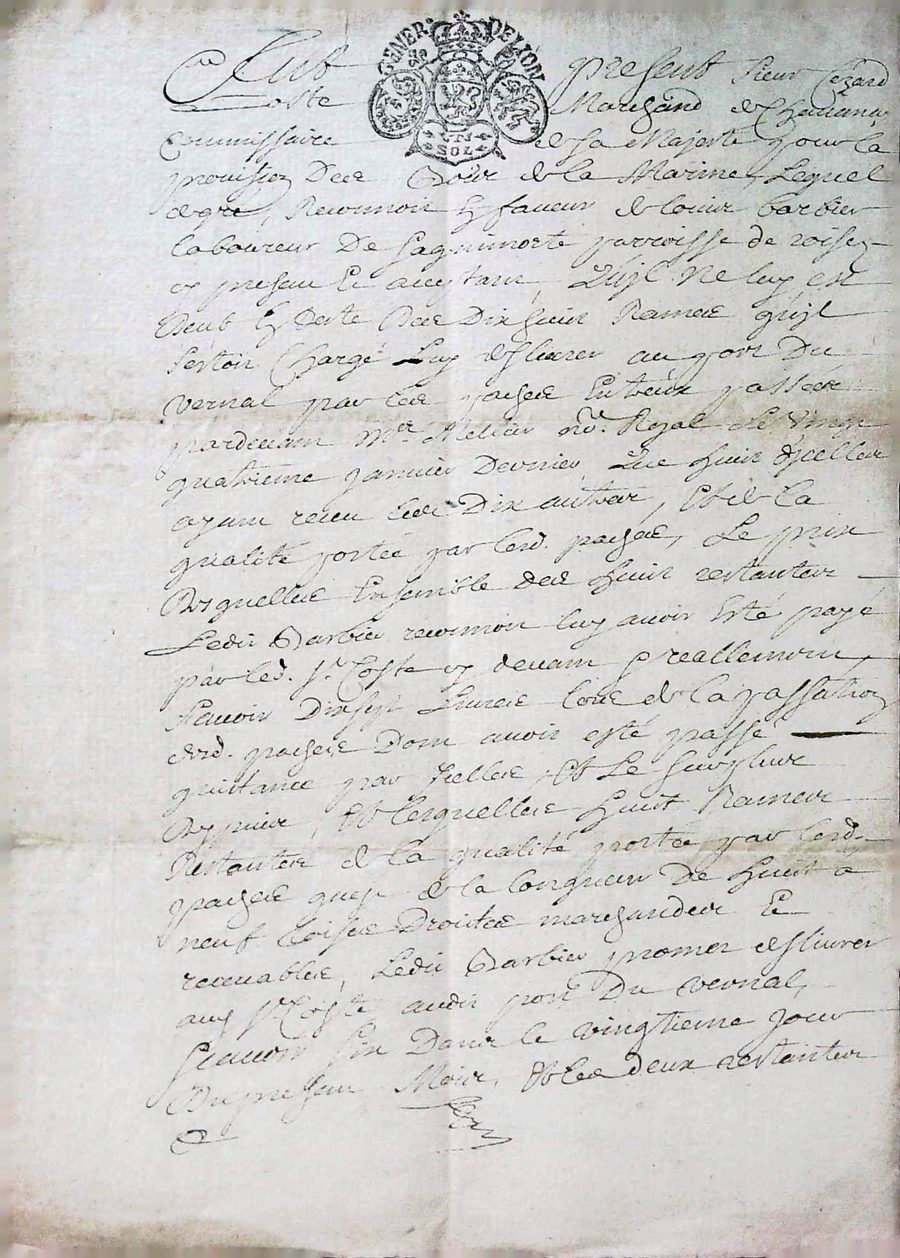 GENER. DE LYON
UN
SOL
Fut present Sieur Cezard
Coste Marchand de
Commissaire de sa Majesté pour la
provision des Bois de la Marine, Lequel
de gré, Reconnoit en faveur de Louis barbier
laboureur De parroisse de roisey
cy present Et acceptant, Qu'il ne luy est
deub En reste des Dix huit Rames qu'il
s'estoit Chargé Luy deslivrer au port Du
vernal par les paches Entr'eux passées
pardevant Mre nre. Royal Le vingt
quatrieme janvier Dernier, Que huit d'icelles
ayant receu les Dix autres, Et de la
qualité portée par lesd. paches, Le prix
desquelles Ensemble des huit restantes
Ledit Barbier reconnoit luy avoir Esté payé
par led. Sr. Coste cy devant & reallement,
Scavoir Dix sept Livres lors de la passation
desd. paches Dont avoit esté passé
quittance par Icelles, Et Le surplus
depuis, Et lesquelles huit Rames
Restantes de la qualité portée par lesd.
paches que de la longueur De huit à
neuf toises Droites marchandes Et
recevables, Ledit Barbier promet deslivrer
aud. Sr. Coste audit port Du vernal,
Scavoir six Dans le vingtieme jour
Du present Mois, Et les deux restantes